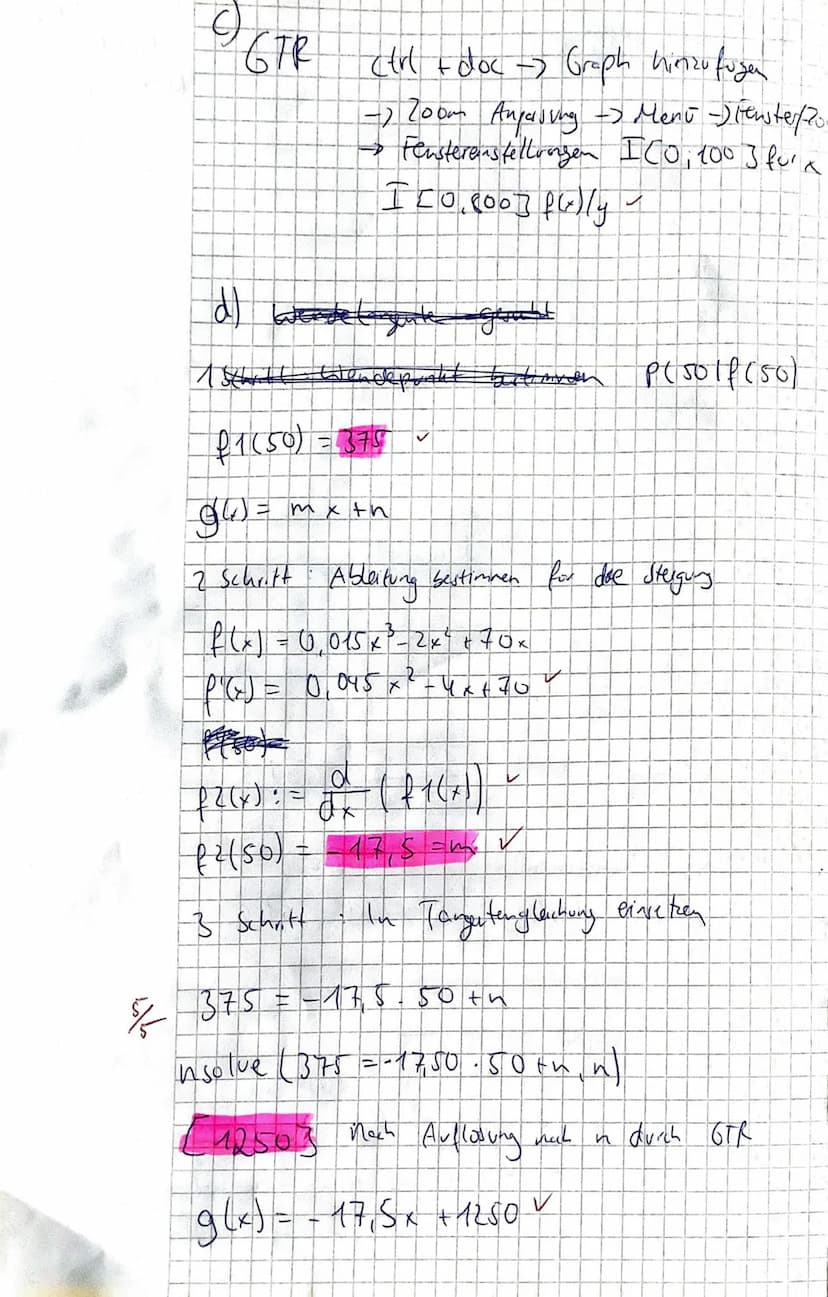 c)
GTR ctrl + doc -> Graph hinzufügen
-> Zoom Anpassung -> Menü -> Fenster/Zo
-> Fenstereinstellungen I[0;100] für x
I[0,800] f(x)/y ✓
d) Wendetangente gesucht
1 Schritt Wendepunkt bestimmen P(50|f(50)
f1(50) = 375 ✓
g(x) = mx+n
2 Schritt: Ableitung bestimmen für die Steigung
f(x) = 0,015x³-2x²+70x
f'(x) = 0,045x²-4x+70 ✓
f'(50)=
f2(x) := d/dx (f1(x)) ✓
f2(50) = -17,5 = m ✓
3 Schritt: In Tangentengleichung einsetzen
5/5 375 = -17,5 · 50 + n
nsolve (375 = -17,50 · 50 + n, n)
[1250} Nach Auflösung nach n durch GTR
g(x) = -17,5x + 1250 ✓